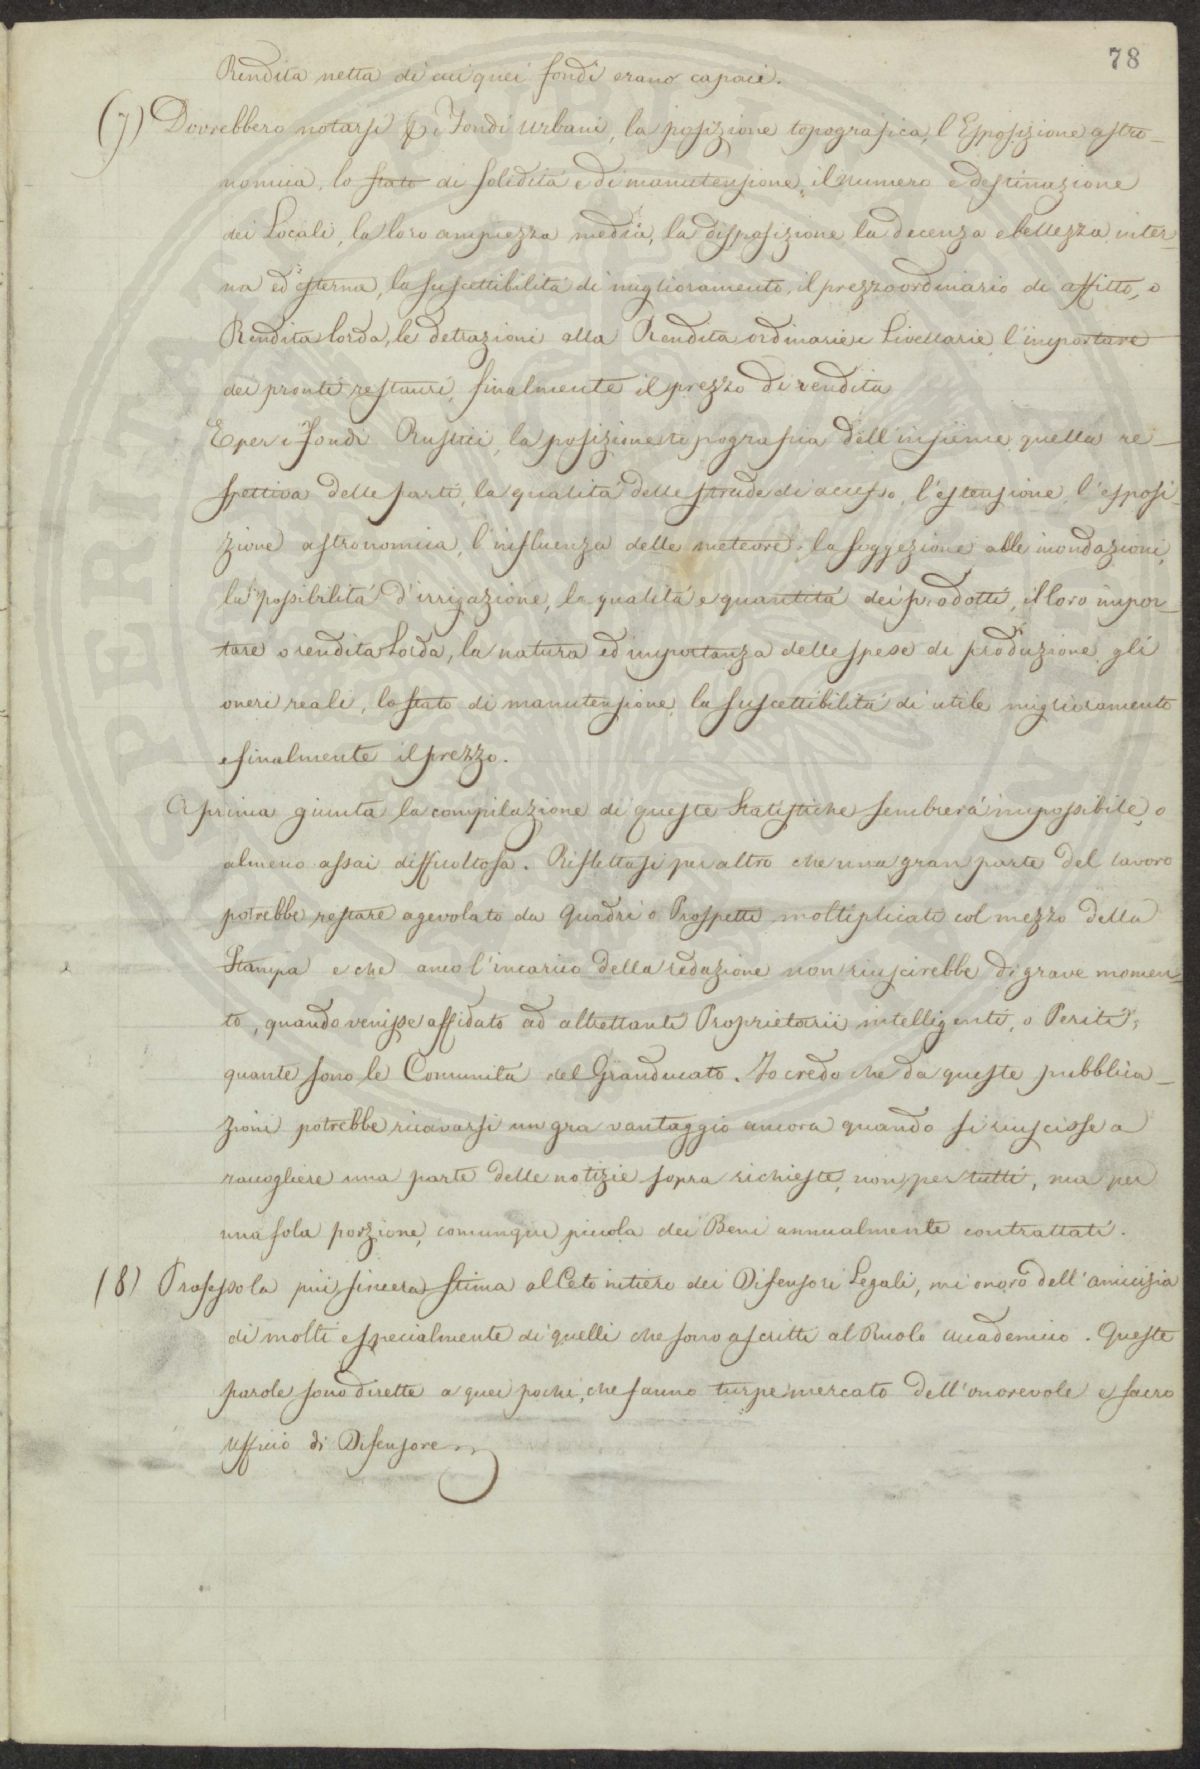 78
Rendita netta di cui quei fondi erano capaci.
(7) Dovrebbero notarsi pei Fondi urbani, la posizione topografica, l'Esposizione astro-
nomica, lo stato di solidità e di manutensione, il numero e destinazione
dei Locali, la loro ampiezza media, la disposizione la decenza e bellezza inter-
na ed esterna, la suscettibilità di miglioramento, il prezzo ordinario di affitto, o
Rendita lorda, le detrazioni alla Rendita ordinarie e Livellarie l'importare
dei pronti restauri, finalmente il prezzo di vendita
E per i Fondi Rustici, la posizione topografica dell'insieme quella re-
spettiva delle parti, la qualità delle strade di accesso, l'estensione, l'esposi-
zione astronomica, l'influenza delle meteore, la soggezione alle inondazioni,
la possibilità d'irrigazione, la qualità e quantità dei prodotti, il loro impor-
tare o rendita Lorda, la natura ed importanza delle spese di produzione gli
oneri reali, lo stato di manutensione, la suscettibilità di utile miglioramento
e finalmente il prezzo.
A prima giunta la compilazione di queste Statistiche sembrerà impossibile, o
almeno assai difficoltosa. Riflettasi per altro che una gran parte del lavoro
potrebbe restare agevolato da Quadri o Prospetti moltiplicati col mezzo della
Stampa e che anco l'incarico della redazione non riuscirebbe di grave momen-
to, quando venisse affidato ad altrettanti Proprietarii intelligenti, o Periti,
quante sono le Comunità del Granducato. Io credo che da queste pubblica-
zioni potrebbe ricavarsi un gra vantaggio ancora quando si riuscisse a
raccogliere una parte delle notizie sopra richieste, non per tutti, ma per
una sola porzione, comunque piccola dei Beni annualmente contrattati.
(8) Professo la più sincera stima al Ceto intiero dei Difensori Legali, mi onoro dell'amicizia
di molti e specialmente di quelli che sono ascritti al Ruolo Accademico. Queste
parole sono dirette a quei pochi, che fanno turpe mercato dell'onorevole e sacro
Ufficio di Difensore